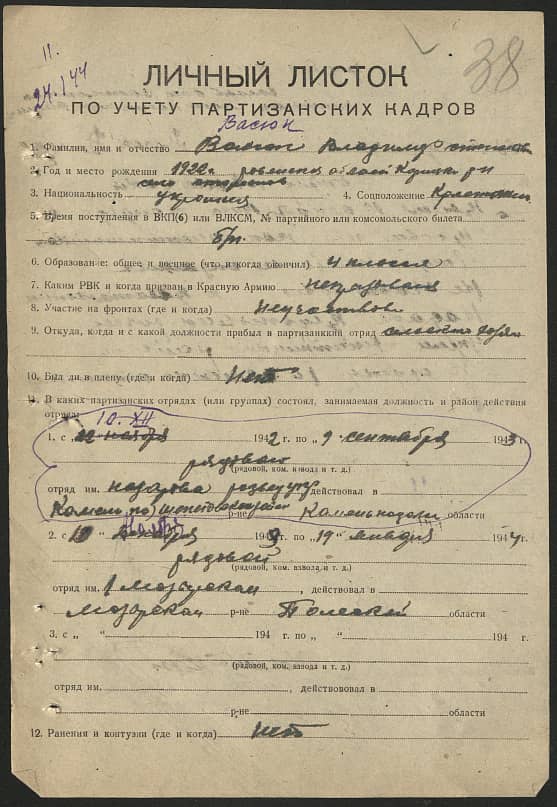 11.
24.1 44
38
ЛИЧНЫЙ ЛИСТОК
ПО УЧЕТУ ПАРТИЗАНСКИХ КАДРОВ
Васюк
1. Фамилия, имя и отчество Васюк Владимир
2. Год и место рождения 1922 г.
село
3. Национальность украинец 4. Соцположение
5. Время поступления в ВКП(б) или ВЛКСМ, № партийного или комсомольского билета
б/п
6. Образование: общее и военное (что и когда окончил) 4 класса
7. Каким РВК и когда призван в Красную Армию
8. Участие на фронтах (где и когда) Неучаствовал
9. Откуда, когда и с какой должности прибыл в партизанкий отряд
10. Был ли в плену (где и когда) Нет
11. В каких партизанских отрядах (или группах) состоял, занимаемая должность и район действия
отряда:
10. XII
1. с „ ноября 1942 г. по „ 9 сентября 1943 г.
рядовой
(рядовой, ком. взвода и т. д.)
отряд им. действовал в
р-не области
ноября
2. с „ 10 1943 г. по „ 19 " января 1944 г.
рядовой
(рядовой, ком. взвода и т. д.)
отряд им. 1 Мозырский , действовал в
Мозырском р-не Полеской области
3. с „ " 194 г. по „ " 194 г.
(рядовой, ком. взвода и т. д.)
отряд им. , действововал в
р-не области
12. Ранения и контузии (где и когда) нет